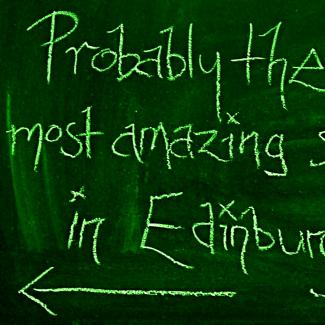 Probably the
most amazing s
in Edinbur